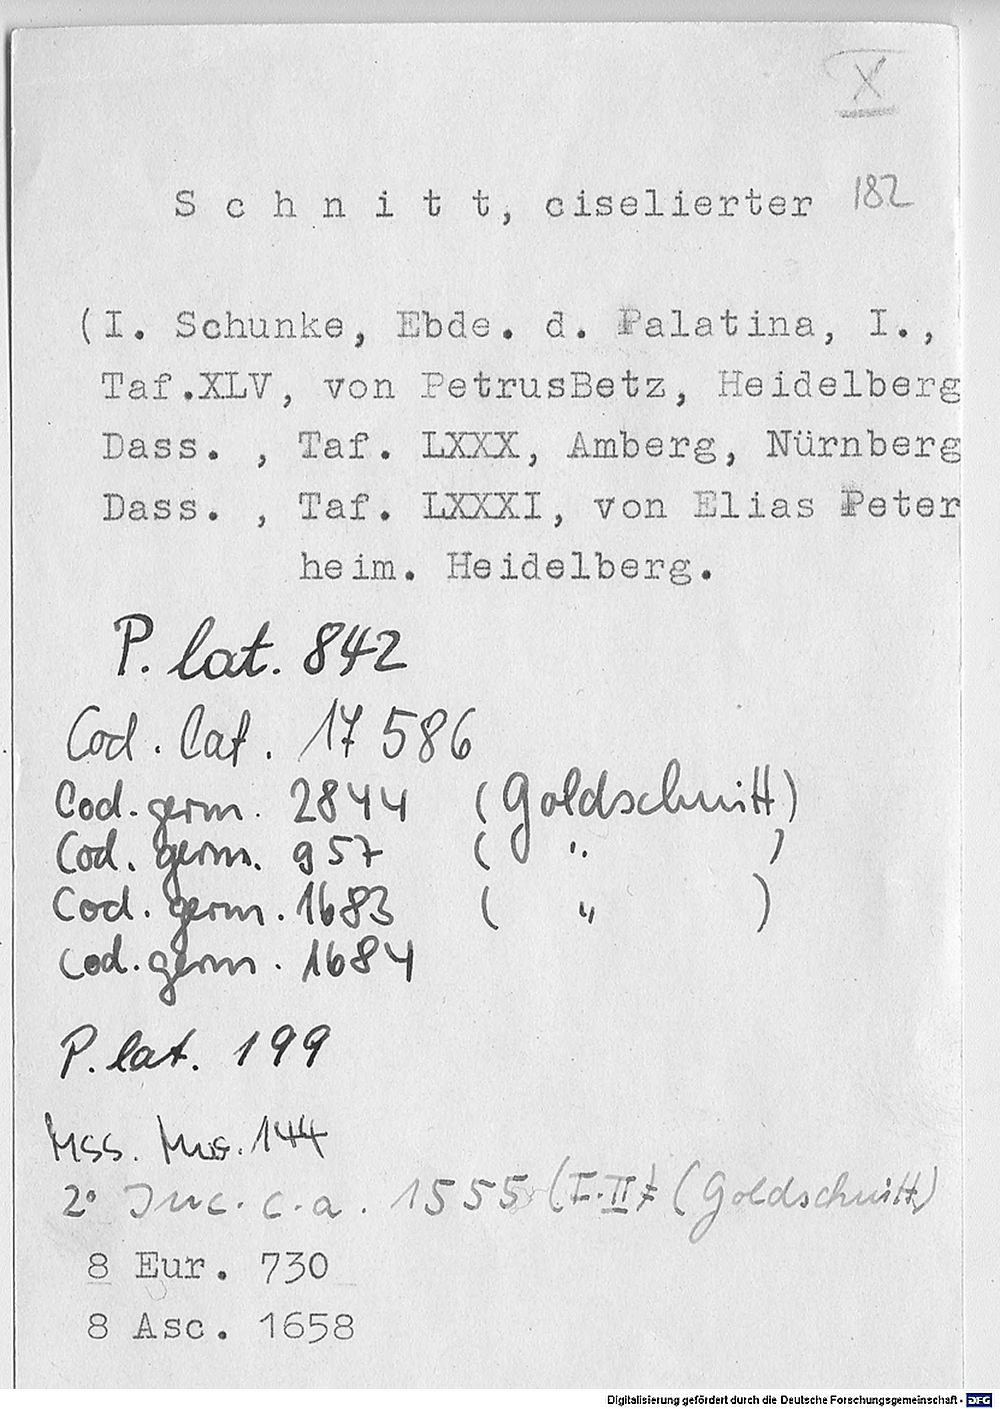 X
S c h n i t t, ciselierter 182
(I. Schunke, Ebde. d. Palatina, I.,
Taf.XLV, von PetrusBetz, Heidelberg
Dass. , Taf. LXXX, Amberg, Nürnberg
Dass. , Taf. LXXXI, von Elias Peter
heim. Heidelberg.
P. lat. 842
Cod. lat. 17 586
Cod. germ. 2844 (Goldschnitt)
Cod. germ. 957 ( " )
Cod. germ. 1683 ( " )
Cod. germ. 1684
P. lat. 199
Mss. Mus. 144
2° Inc. c. a. 1555 (I.II) (Goldschnitt)
8 Eur. 730
8 Asc. 1658
Digitalisierung gefördert durch die Deutsche Forschungsgemeinschaft - DFG